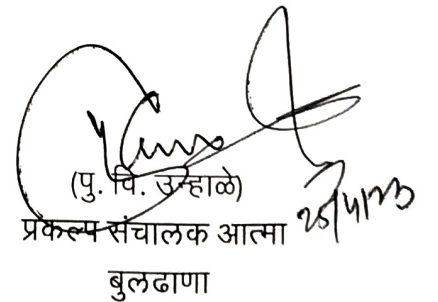 (पु. वि. उन्हाळे)
प्रकल्प संचालक आत्मा
बुलढाणा